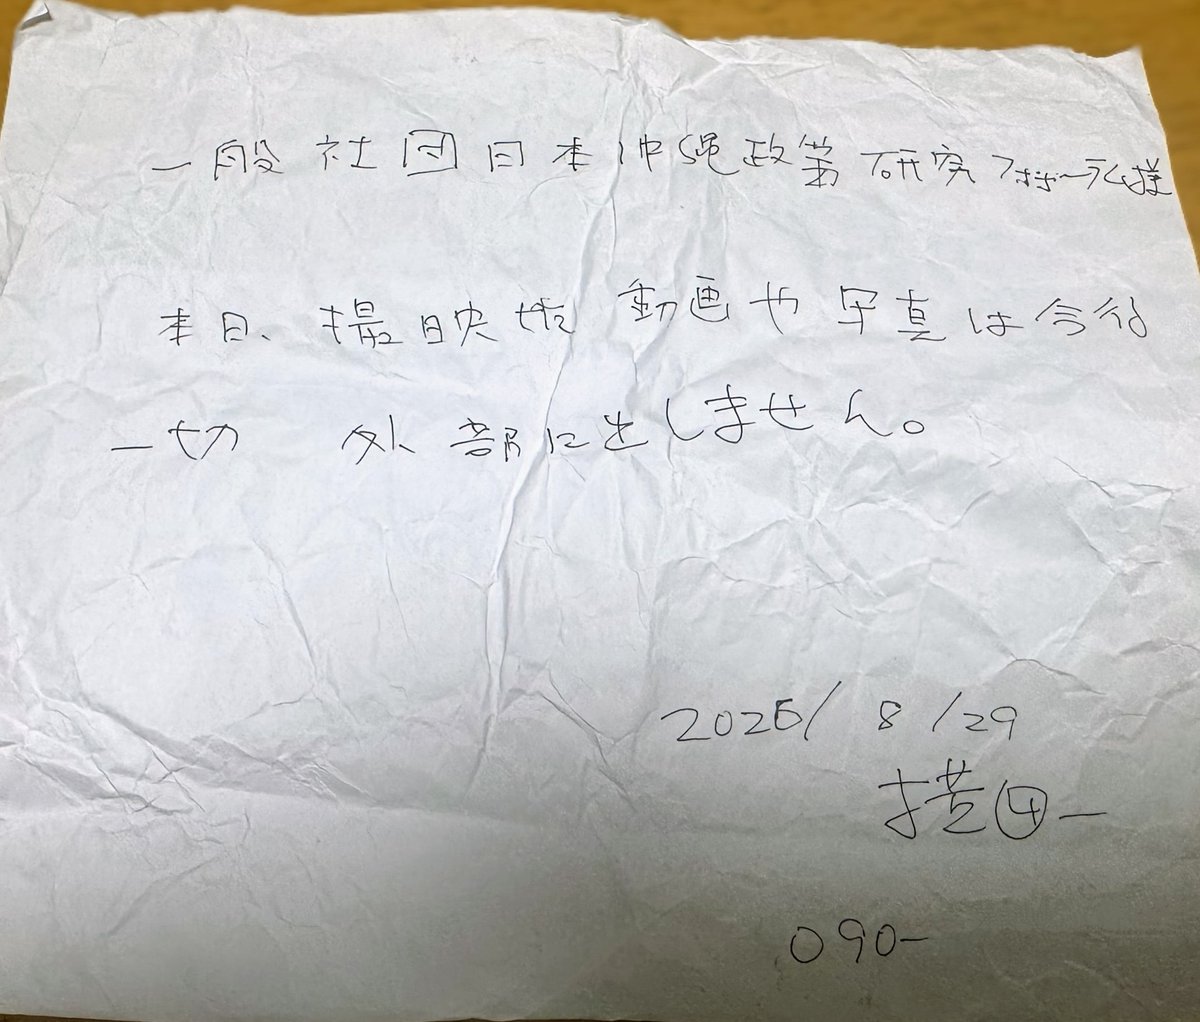 一般社団日本沖縄政策研究フォーラム様
本日、撮映した動画や写真は今後
一切 外部に出しません。
2025/8/29
横田一
090-